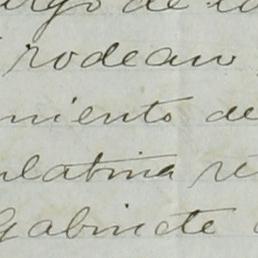 de
rodean
miento de
latina re
Gabinete